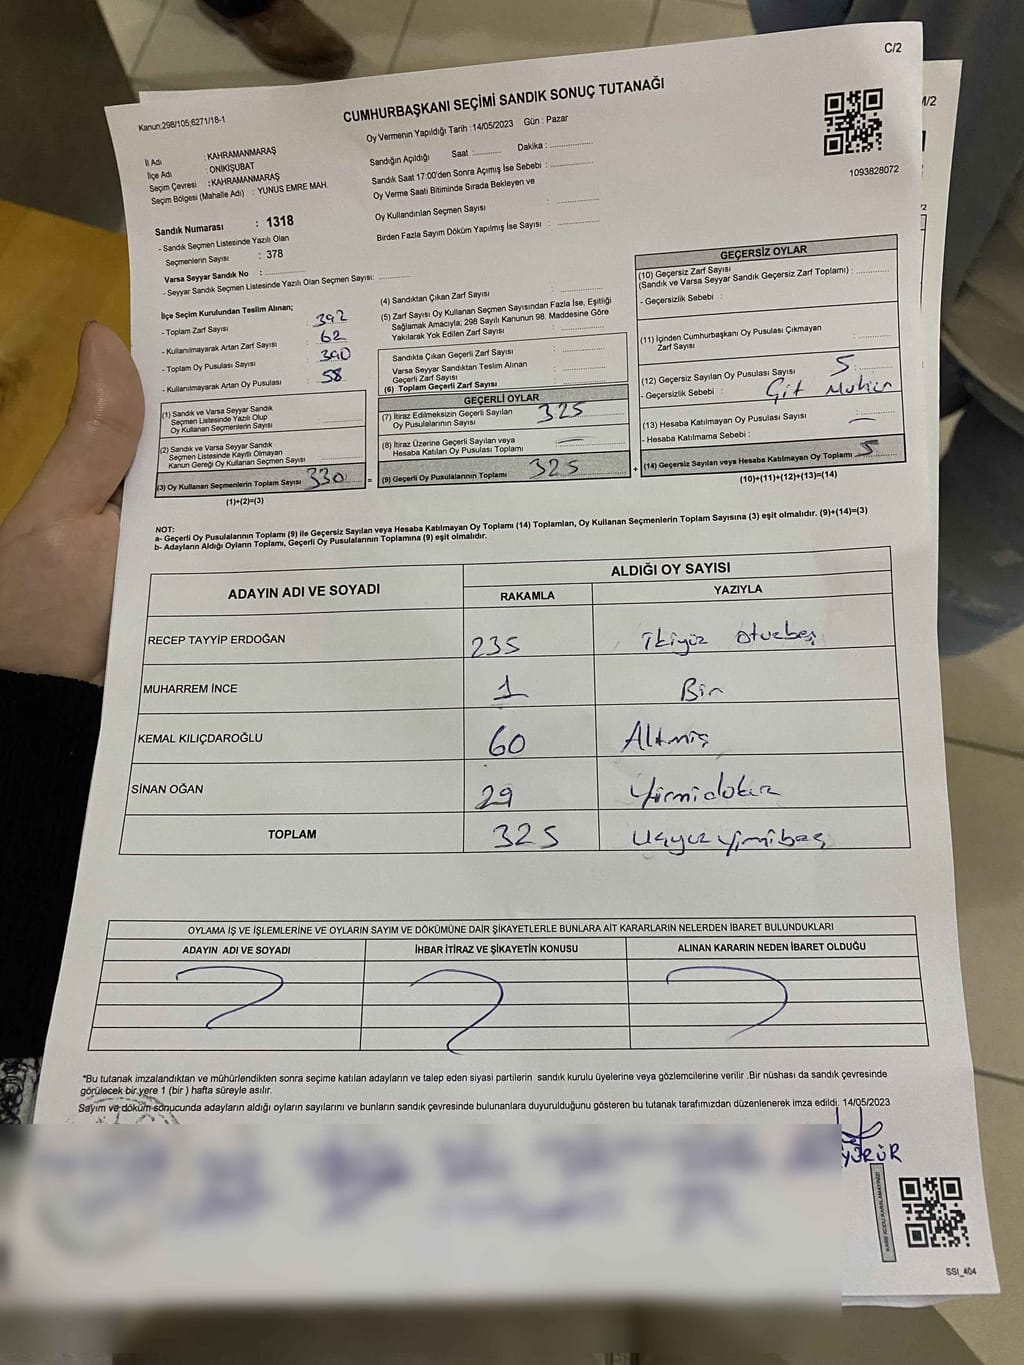 C/2
Kanun;298/105,6271/18-1
CUMHURBAŞKANI SEÇİMİ SANDIK SONUÇ TUTANAĞI
Oy Vermenin Yapıldığı Tarih :14/05/2023 Gün : Pazar
1093828072
İl Adı : KAHRAMANMARAŞ
İlçe Adı : ONİKİŞUBAT
Seçim Çevresi : KAHRAMANMARAŞ
Seçim Bölgesi (Mahalle Adı) : YUNUS EMRE MAH.
Sandığın Açıldığı Saat :........... Dakika :................
Sandık Saat 17:00'den Sonra Açımış İse Sebebi :................
Oy Verme Saati Bitiminde Sırada Bekleyen ve
Oy Kullandırılan Seçmen Sayısı :................
Birden Fazla Sayım Döküm Yapılmış İse Sayısı :................
Sandık Numarası : 1318
- Sandık Seçmen Listesinde Yazılı Olan
Seçmenlerin Sayısı : 378
Varsa Seyyar Sandık No :................
- Seyyar Sandık Seçmen Listesinde Yazılı Olan Seçmen Sayısı:..........
İlçe Seçim Kurulundan Teslim Alınan;
- Toplam Zarf Sayısı : 392
- Kullanılmayarak Artan Zarf Sayısı : 62
- Toplam Oy Pusulası Sayısı : 390
- Kullanılmayarak Artan Oy Pusulası : 58
(1) Sandık ve Varsa Seyyar Sandık
Seçmen Listesinde Yazılı Olup
Oy Kullanan Seçmenlerin Sayısı :............
(2) Sandık ve Varsa Seyyar Sandık
Seçmen Listesinde Kayıtlı Olmayan
Kanun Gereği Oy Kullanan Seçmen Sayısı :............
(3) Oy Kullanan Seçmenlerin Toplam Sayısı 330
(1)+(2)=(3)
(4) Sandıktan Çıkan Zarf Sayısı :............
(5) Zarf Sayısı Oy Kullanan Seçmen Sayısından Fazla İse, Eşitliği
Sağlamak Amacıyla; 298 Sayılı Kanunun 98. Maddesine Göre
Yakılarak Yok Edilen Zarf Sayısı :............
Sandıkta Çıkan Geçerli Zarf Sayısı :............
Varsa Seyyar Sandıktan Teslim Alınan
Geçerli Zarf Sayısı :............
(6) Toplam Geçerli Zarf Sayısı :............
GEÇERLİ OYLAR
(7) İtiraz Edilmeksizin Geçerli Sayılan
Oy Pusulalarının Sayısı : 325
(8) İtiraz Üzerine Geçerli Sayılan veya
Hesaba Katılan Oy Pusulası Toplamı : —
= (9) Geçerli Oy Pusulalarının Toplamı 325 +
GEÇERSİZ OYLAR
(10) Geçersiz Zarf Sayısı
(Sandık ve Varsa Seyyar Sandık Geçersiz Zarf Toplamı) :............
- Geçersizlik Sebebi :
(11) İçinden Cumhurbaşkanı Oy Pusulası Çıkmayan
Zarf Sayısı :............
(12) Geçersiz Sayılan Oy Pusulası Sayısı : 5
- Geçersizlik Sebebi :
(13) Hesaba Katılmayan Oy Pusulası Sayısı : —
- Hesaba Katılmama Sebebi :
(14) Geçersiz Sayılan veya Hesaba Katılmayan Oy Toplamı 5
(10)+(11)+(12)+(13)=(14)
NOT:
a- Geçerli Oy Pusulalarının Toplamı (9) ile Geçersiz Sayılan veya Hesaba Katılmayan Oy Toplamı (14) Toplamları, Oy Kullanan Seçmenlerin Toplam Sayısına (3) eşit olmalıdır. (9)+(14)=(3)
b- Adayların Aldığı Oyların Toplamı, Geçerli Oy Pusulalarının Toplamına (9) eşit olmalıdır.
ADAYIN ADI VE SOYADI
ALDIĞI OY SAYISI
RAKAMLA YAZIYLA
RECEP TAYYİP ERDOĞAN 235 İkiyüz otuzbeş
MUHARREM İNCE 1 Bir
KEMAL KILIÇDAROĞLU 60 Altmış
SİNAN OĞAN 29 Yirmidokuz
TOPLAM 325 Üçyüzyirmibeş
OYLAMA İŞ VE İŞLEMLERİNE VE OYLARIN SAYIM VE DÖKÜMÜNE DAİR ŞİKAYETLERLE BUNLARA AİT KARARLARIN NELERDEN İBARET BULUNDUKLARI
ADAYIN ADI VE SOYADI İHBAR İTİRAZ VE ŞİKAYETİN KONUSU ALINAN KARARIN NEDEN İBARET OLDUĞU
*Bu tutanak imzalandıktan ve mühürlendikten sonra seçime katılan adayların ve talep eden siyasi partilerin sandık kurulu üyelerine veya gözlemcilerine verilir .Bir nüshası da sandık çevresinde
görülecek bir yere 1 (bir ) hafta süreyle asılır.
Sayım ve döküm sonucunda adayların aldığı oyların sayılarını ve bunların sandık çevresinde bulunanlara duyurulduğunu gösteren bu tutanak tarafımızdan düzenlenerek imza edildi. 14/05/2023
YÜRÜR
KARE KODU KARALAMAYINIZ!
SSI_404